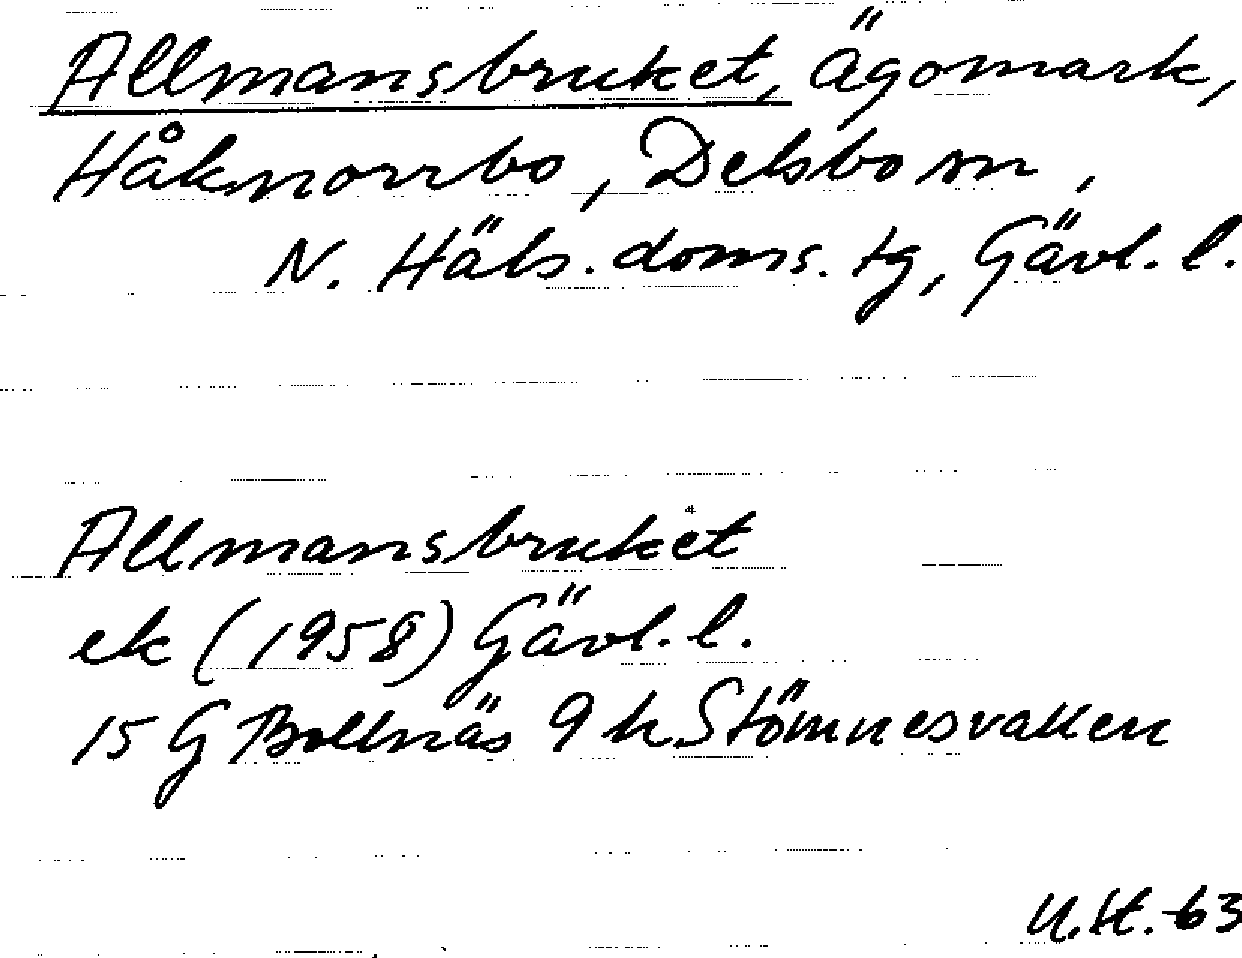 Allmansbruket, ägomark,
Håknorrbo, Delsbo sn,
N. Häls. doms. tg, Gävl. l.
Allmansbruket
ek (1958) Gävl. l.
15 G Bollnäs 9 h Stömnesvallen
U.H.-63